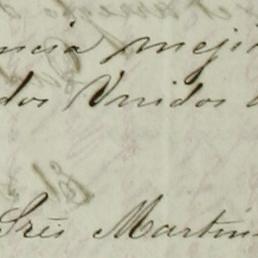 ncia meji
dos Unidos
Sres Martin